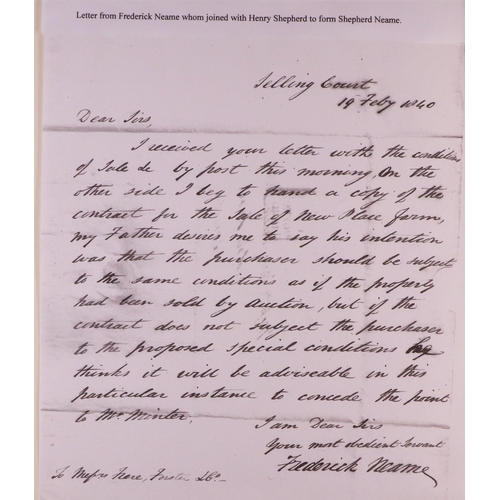 Letter from Frederick Neame whom joined with Henry Shepherd to form Shepherd Neame.
Selling Court
19 Feby 1840
Dear Sirs,
I received your letter with the conditions
of Sale &c by post this morning, On the
other side I beg to hand a copy of the
contract for the Sale of New Place farm,
my Father desires me to say his intention
was that the purchaser should be subject
to the same conditions as if the property
had been sold by Auction, but if the
contract does not subject the purchaser
to the proposed special conditions he
thinks it will be adviseable in this
particular instance to concede the point
to Mr Minter.
I am Dear Sirs
Your most obedient Servant
Frederick Neame
To Messrs Forster &Co